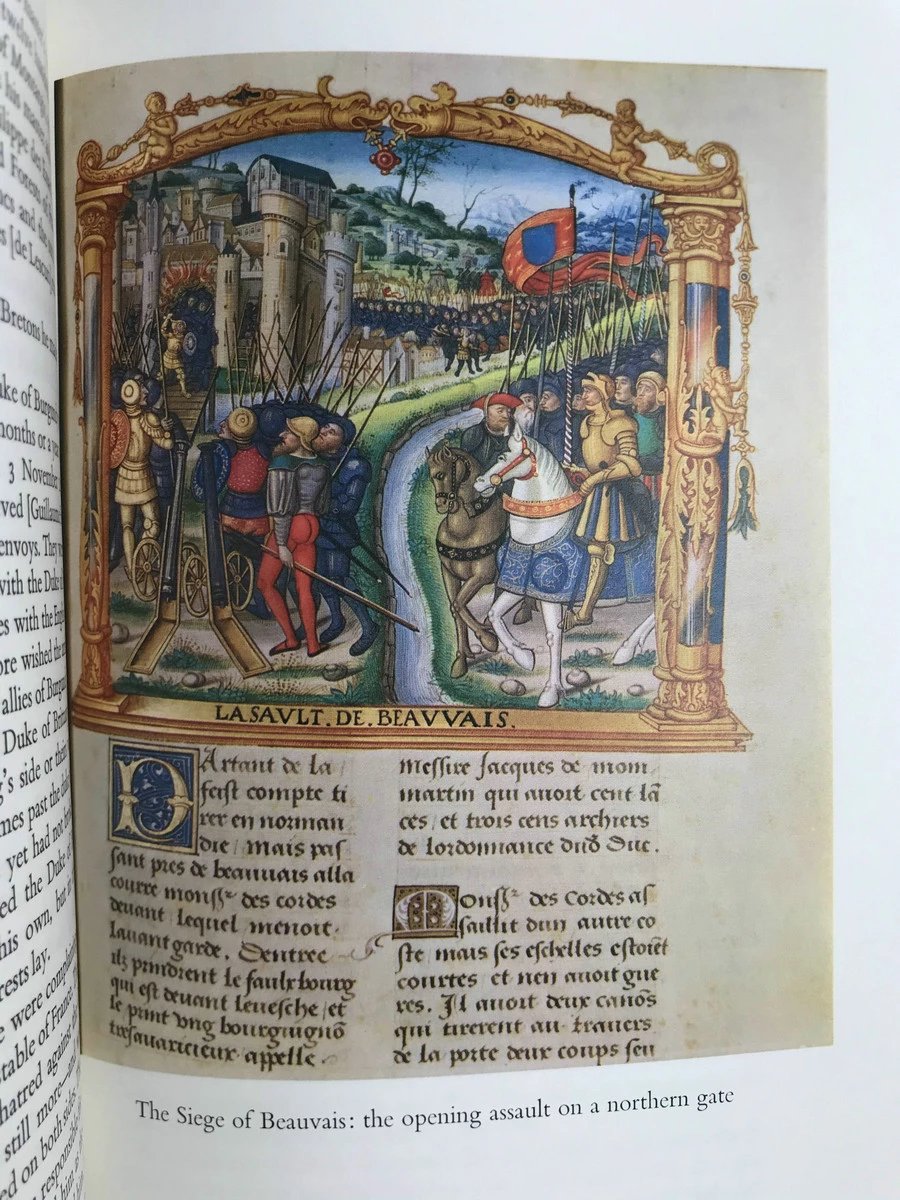 twelve
of Mo
his ma
Philippe de
d Forests,
ics and
es [de Len
Bretons he
uke of Burgun
months or a year
3 November
rved [Guillaume
envoys. They
with the Duke
es with the Eng
ore wished the
allies of Burgun
Duke of Britt
g's side or their
mes past the duke
yet had not
ed the Duke of
his own, but
rests lay.
e were compla
stable of France. T
hatred against the
still more—
ed on both sides
responsible
him as
LASAVLT. DE. BEAVVAIS.
PArtant de la
ferst compte ti
rer en norman
die, mais pas
sant pres de beauvais alla
courre monsr des cordes
devant lequel menoit
lavant garde. Dentree
ilz prindrent le faulxbourg
qui est devant levesche, et
le print vng bourguignō
tresavaricieux appelle
messire Jacques de mom
martin qui avoit cent lā
ces, et trois cens archiers
de lordonnance dud Duc.
Monsr des cordes as
saillit dun autre co
ste mais ses eschelles estoiēt
courtes et nen avoit gue
res. Il avoit deux canōs
qui tirerent au travers
de la porte deux coups seu
The Siege of Beauvais: the opening assault on a northern gate